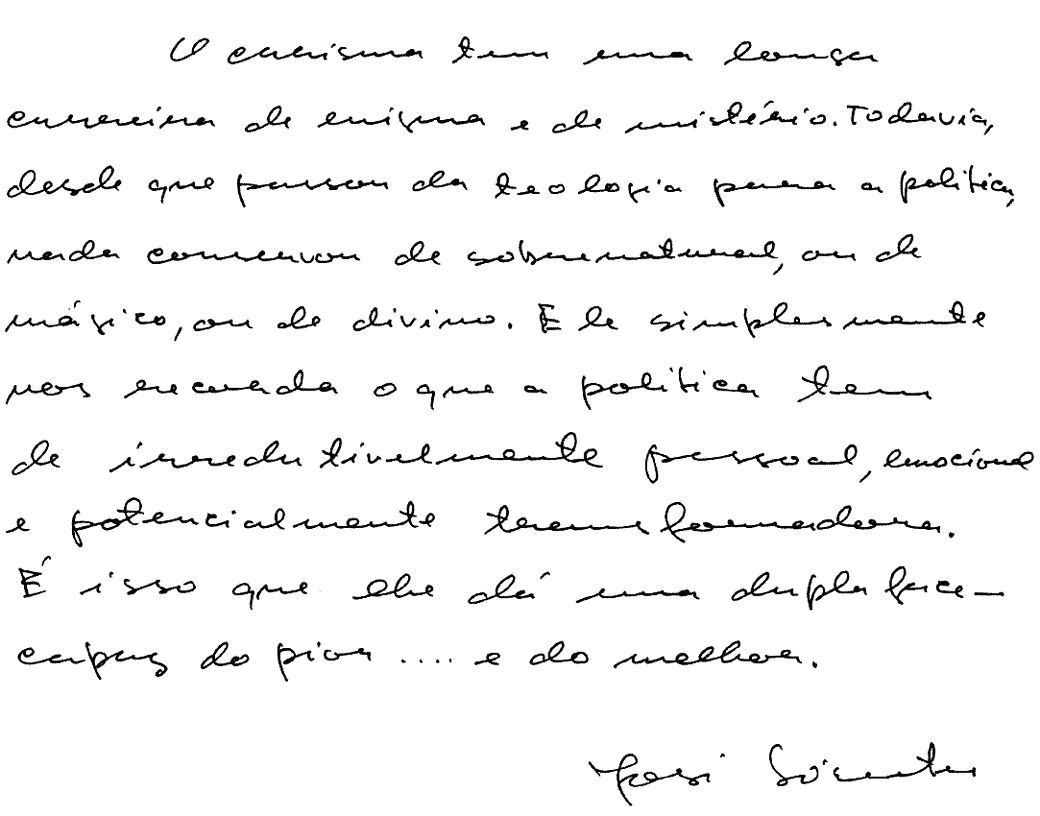 O carisma tem uma longa
carreira de enigma e de mistério. Todavia,
desde que passou da teologia para a política,
nada conservou de sobrenatural, ou de
mágico, ou de divino. Ele simplesmente
nos recorda o que a política tem
de irredutivelmente pessoal, emocional
e potencialmente transformadora.
É isso que lhe dá uma dupla face -
capaz do pior .... e do melhor.
José Sócrates